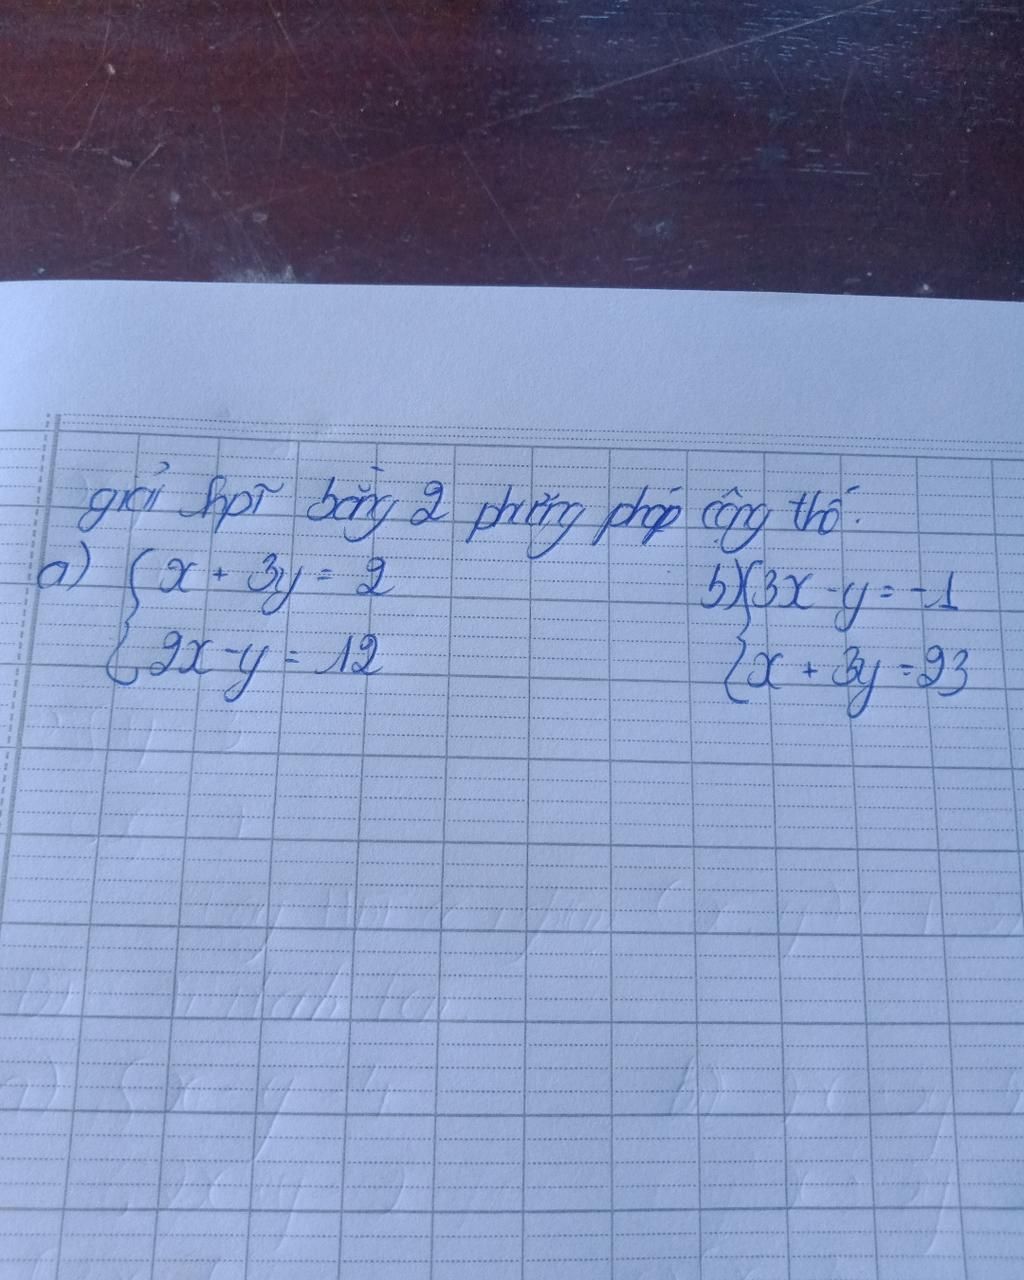 giải hpt bằng 2 phương pháp cộng thế.
a) { x + 3y = 2 b) { 3x - y = -1
{ 2x - y = 12 { x + 3y = 23